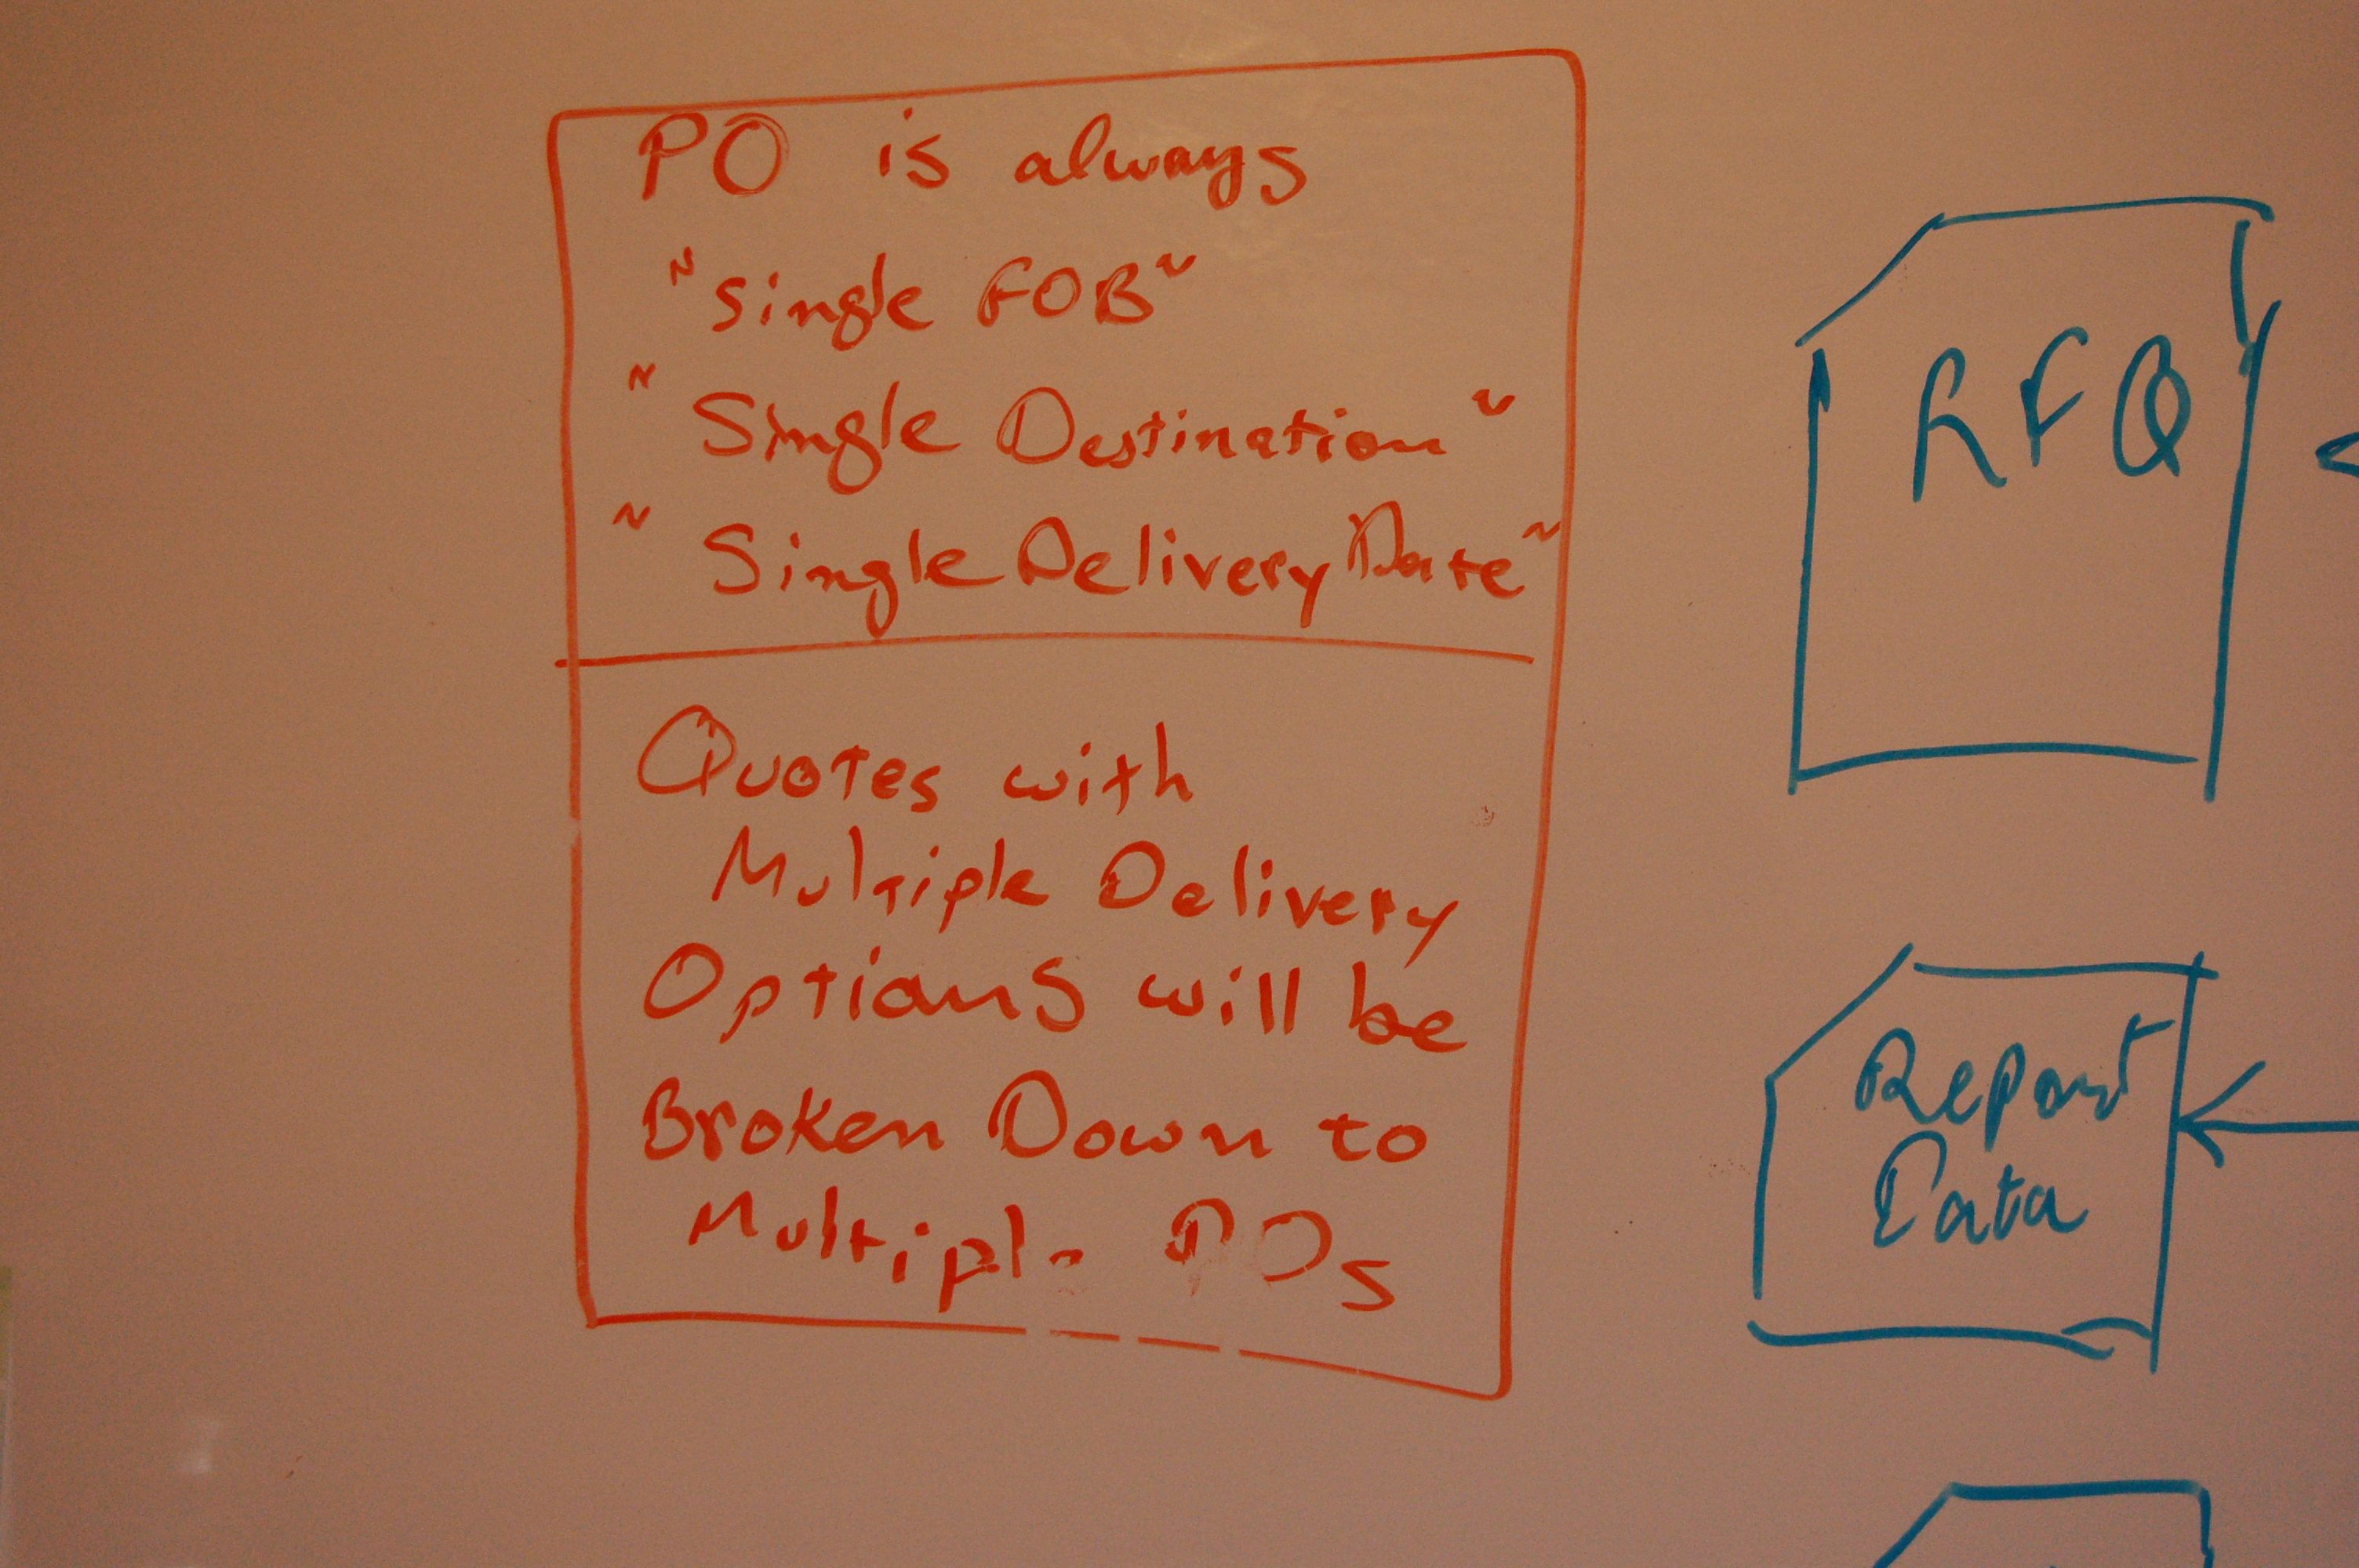 PO is always
"Single FOB"
"Single Destination"
"Single Delivery Date"
Quotes with
Multiple Delivery
Options will be
Broken Down to
Multiple POs
RFQ
Report
Data